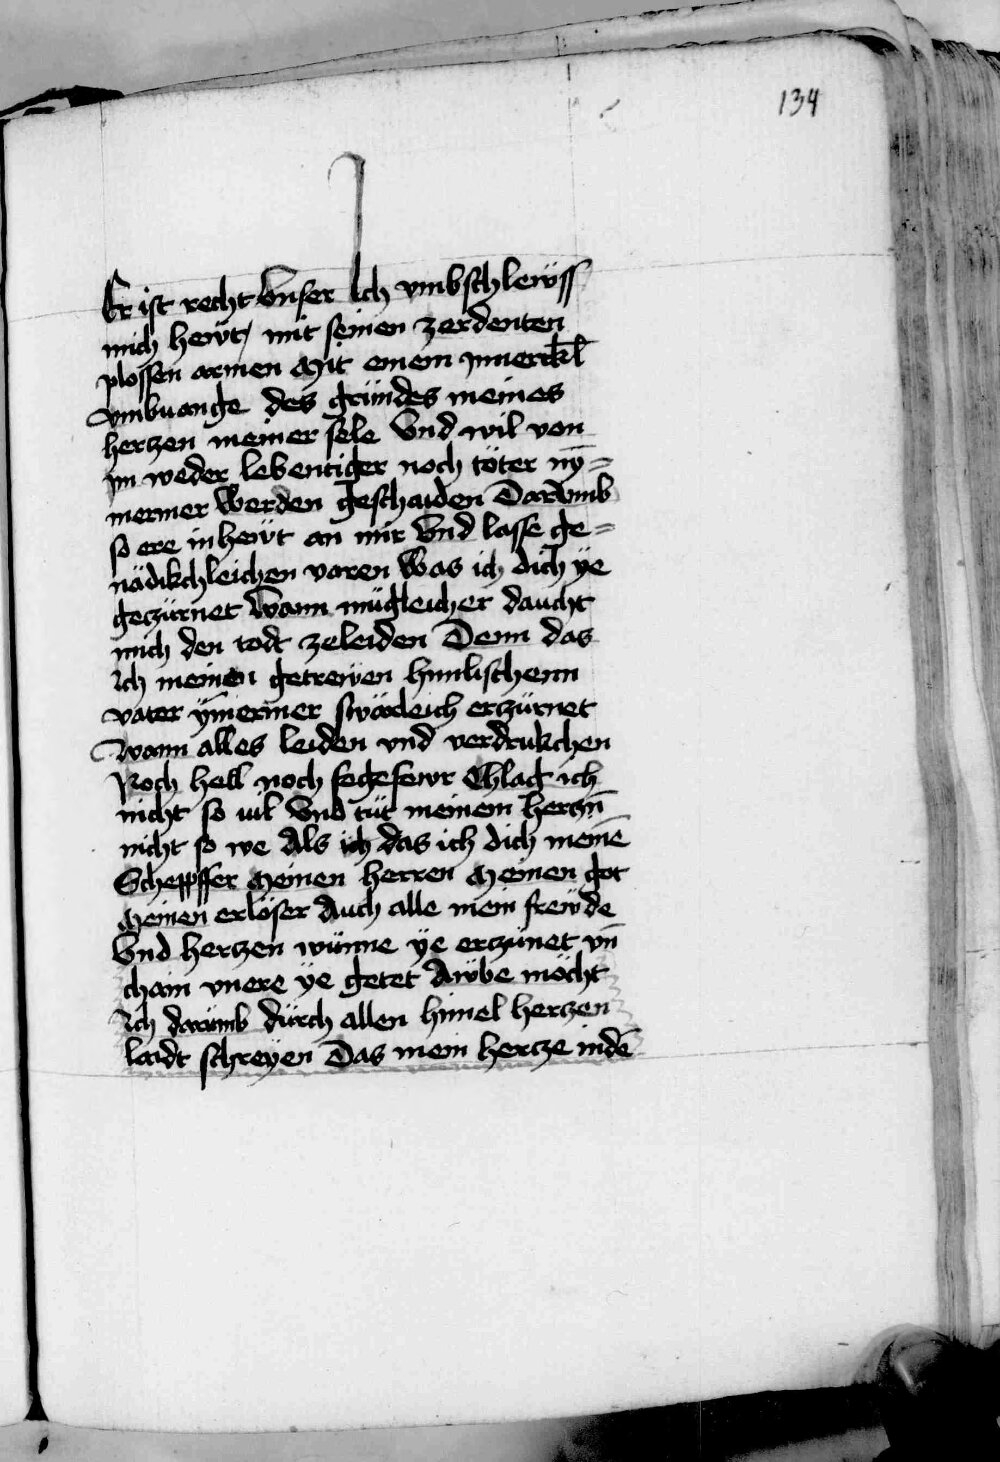 134
Er ist recht Vnser Ich vmbschlewss
mich hewt mit seinen zerdenten
plossen armen Mit einem Innerckl̄
vmbuange des gründes meines
herczen meiner sele Vnd wil von
im weder lebentiger noch töter ny̅=
mermer Werden geschaiden Darvmb
so ere in hewt an mir Vnd lasse ge=
nädikchleichen varen Was ich dich ye
geczürnet Wann mügleicher daucht
mich den todt zeleiden Denn das
Ich meinen getrewen himlischenn
vater ymermer swärleich erczürnet
Wann alles leiden vnd verdrukchen
Noch hell noch fegefewr Chlag ich
nicht so vil Vnd tüt meinem herczn̄
nicht so we Als ich das ich dich meinē
Scheppffer Meinen herren Meinen got
Meinen erlöser Auch alle mein frewde
Vnd herczen wünne ye erczünet vn̄
chain vnere ye getet Awbe möcht
Ich darümb dürch allen himel herczen
laidt schreyen Das mein hercze indē